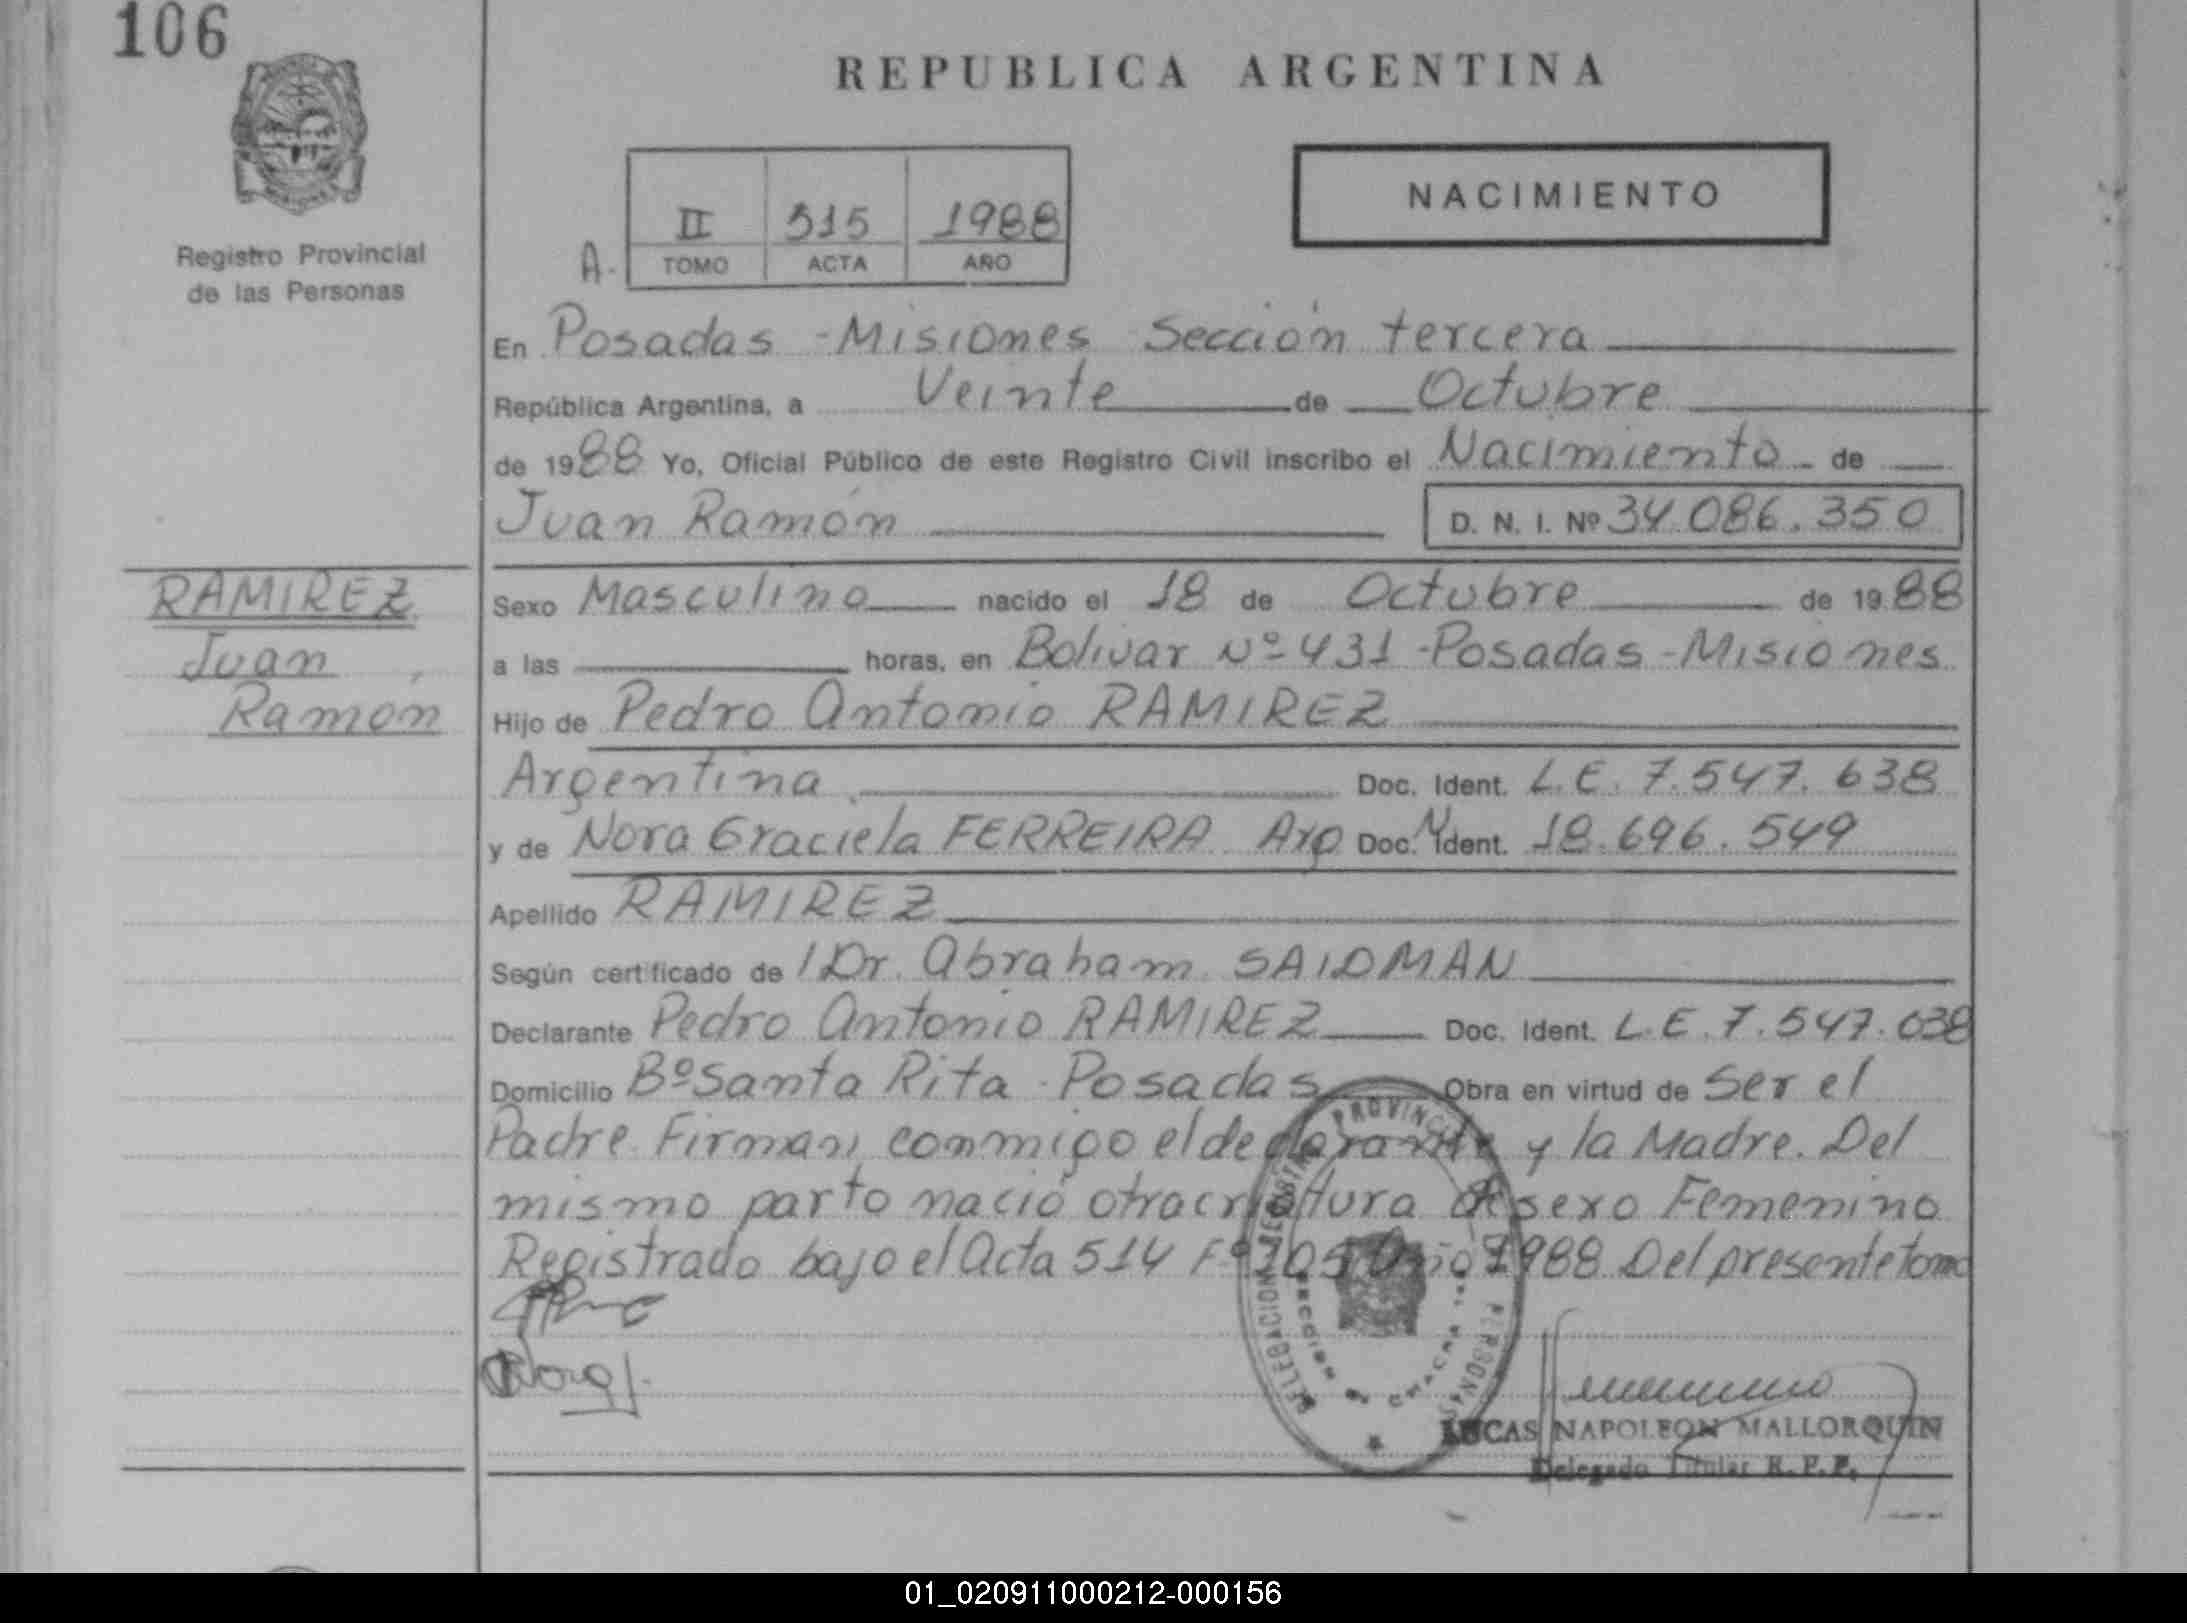 106
REPUBLICA ARGENTINA
NACIMIENTO
II 515 1988
A. TOMO ACTA AÑO
Registro Provincial
de las Personas
En Posadas - Misiones Sección tercera
República Argentina, a Veinte de Octubre
de 1988 Yo, Oficial Público de este Registro Civil inscribo el Nacimiento de
Juan Ramón D. N. I. Nº 34.086.350
RAMIREZ
Juan
Ramón
Sexo Masculino nacido el 18 de Octubre de 1988
a las horas, en Bolivar Nº 431 - Posadas - Misiones
Hijo de Pedro Antonio RAMIREZ
Argentina Doc. Ident. L.E. 7.547.638
y de Nora Graciela FERREIRA Arg Doc. Ident. 18.696.549
Apellido RAMIREZ
Según certificado de / Dr. Abraham SAIDMAN
Declarante Pedro Antonio RAMIREZ Doc. Ident. L.E. 7.547.638
Domicilio Bº Santa Rita - Posadas Obra en virtud de Ser el
Padre. Firman conmigo el declarante y la Madre. Del
mismo parto nació otra criatura de sexo Femenino
Registrado bajo el Acta 514 Fº 105 Año 1988 Del presente tomo
LUCAS NAPOLEON MALLORQUIN
Delegado Titular R.P.P.
01_020911000212-000156